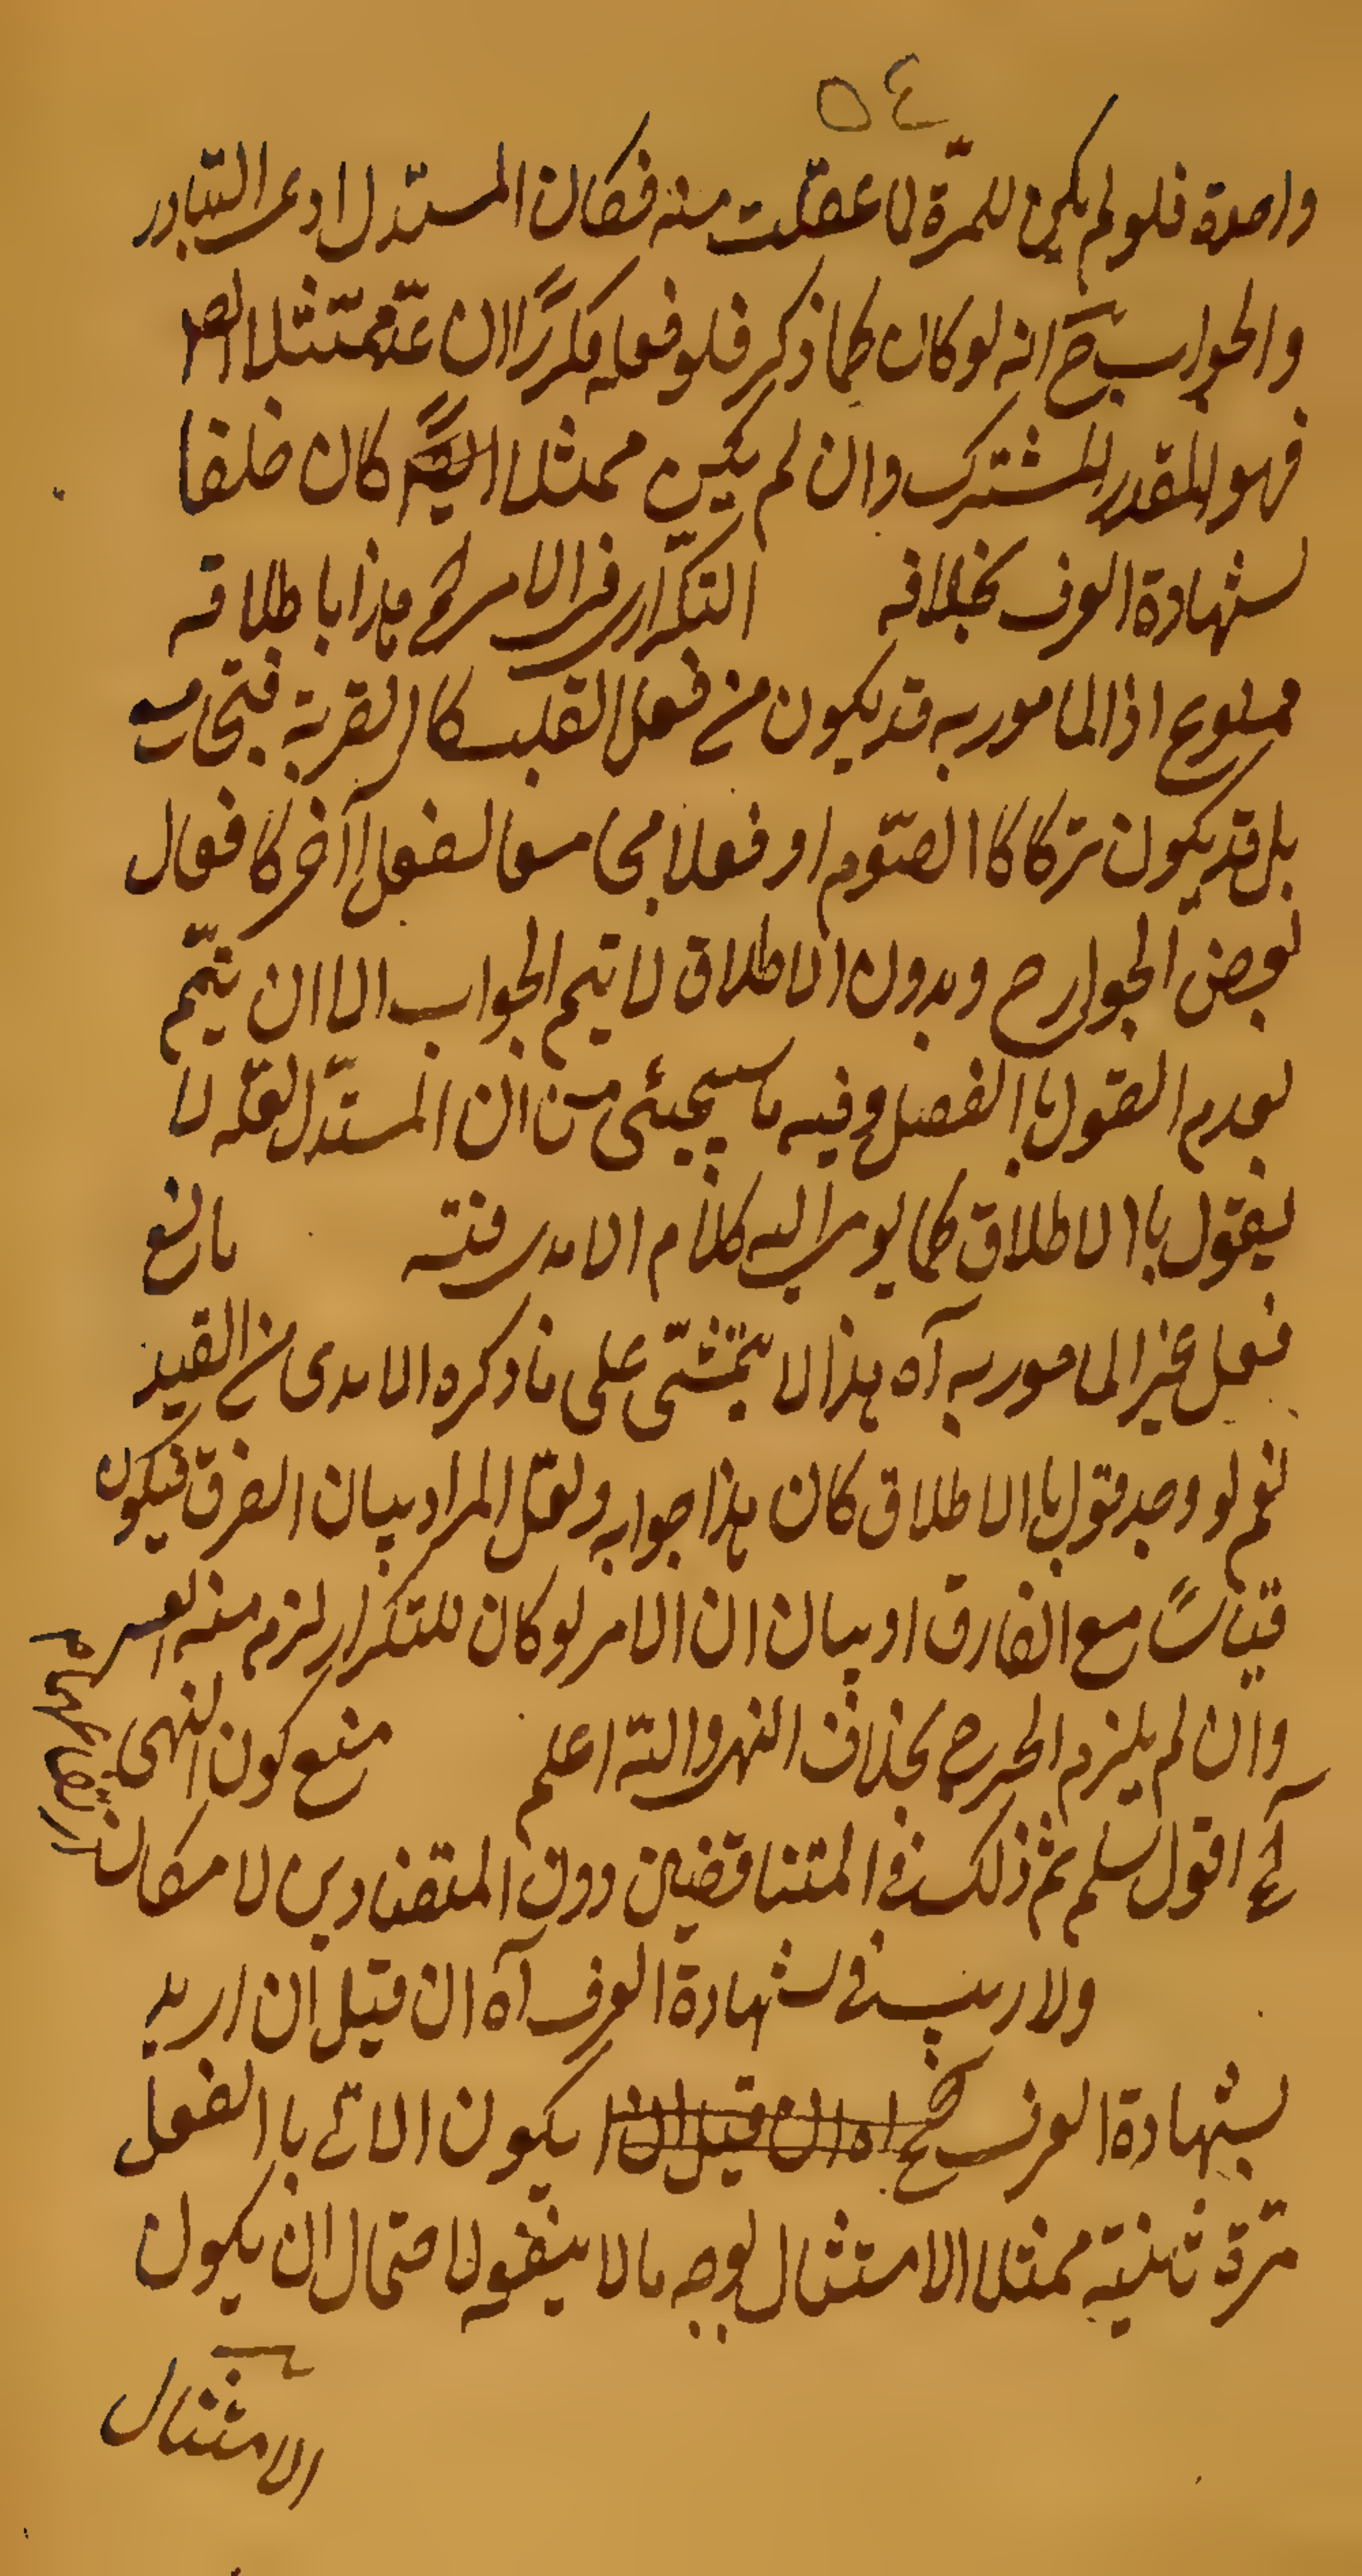 ٥٤
واحدة فلو لم يكن للمرّة لما عقلت منه فكان المستدل ادعى التبادر
والجواب ح انه لو كان كما ذكر فلو فعله مكررًا ان عدّ ممتثلا ايضا
فهو للقدر المشترك وان لم يكن ممثلا ايضًا كان خلفا
لشهادة العرف بخلافه التكرار فى الامر الخ هذا باطلاقه
ممنوع اذ المامور به قد يكون من فعل القلب كالقربة فتجامعه
بل قد يكون تركا كا الصّوم او فعلا مجامعا لفعل آخر كافعال
بعض الجوارح وبدون الاطلاق لا يتم الجواب الا ان يتمّم
بعدم القول با الفصل وفيه ما سيجيئ من ان المستدل لعلّه لا
يقول با الاطلاق كما يومى اليه كلام الامدى فتنه مانع
فعل غير المامور به آه هذا لا يتمشّى على ما ذكره الامدى من القيد
نعم لو وجد قول با الاطلاق كان هذا جوابه ولعل المراد بيان الفرق فيكون
قياسًا مع الفارق او بيان ان الامر لو كان للتكرار لزم منه العسر
وان لم يلزم الحرج بخلاف النهى والله اعلم منع كون النهى
الخ اقول سلم ثم ذلك فى المتناقضين دون المتضادين لامكان
ولا ريب فى شهادة العرف آه ان قيل ان اريد
بشهادة العرف الخ اه ان قيل ان يكون الاتى با الفعل
مرّة ثانية ممثلا الامتثال بوجه ما لا ينفعه لاحتمال ان يكون
الامتثال